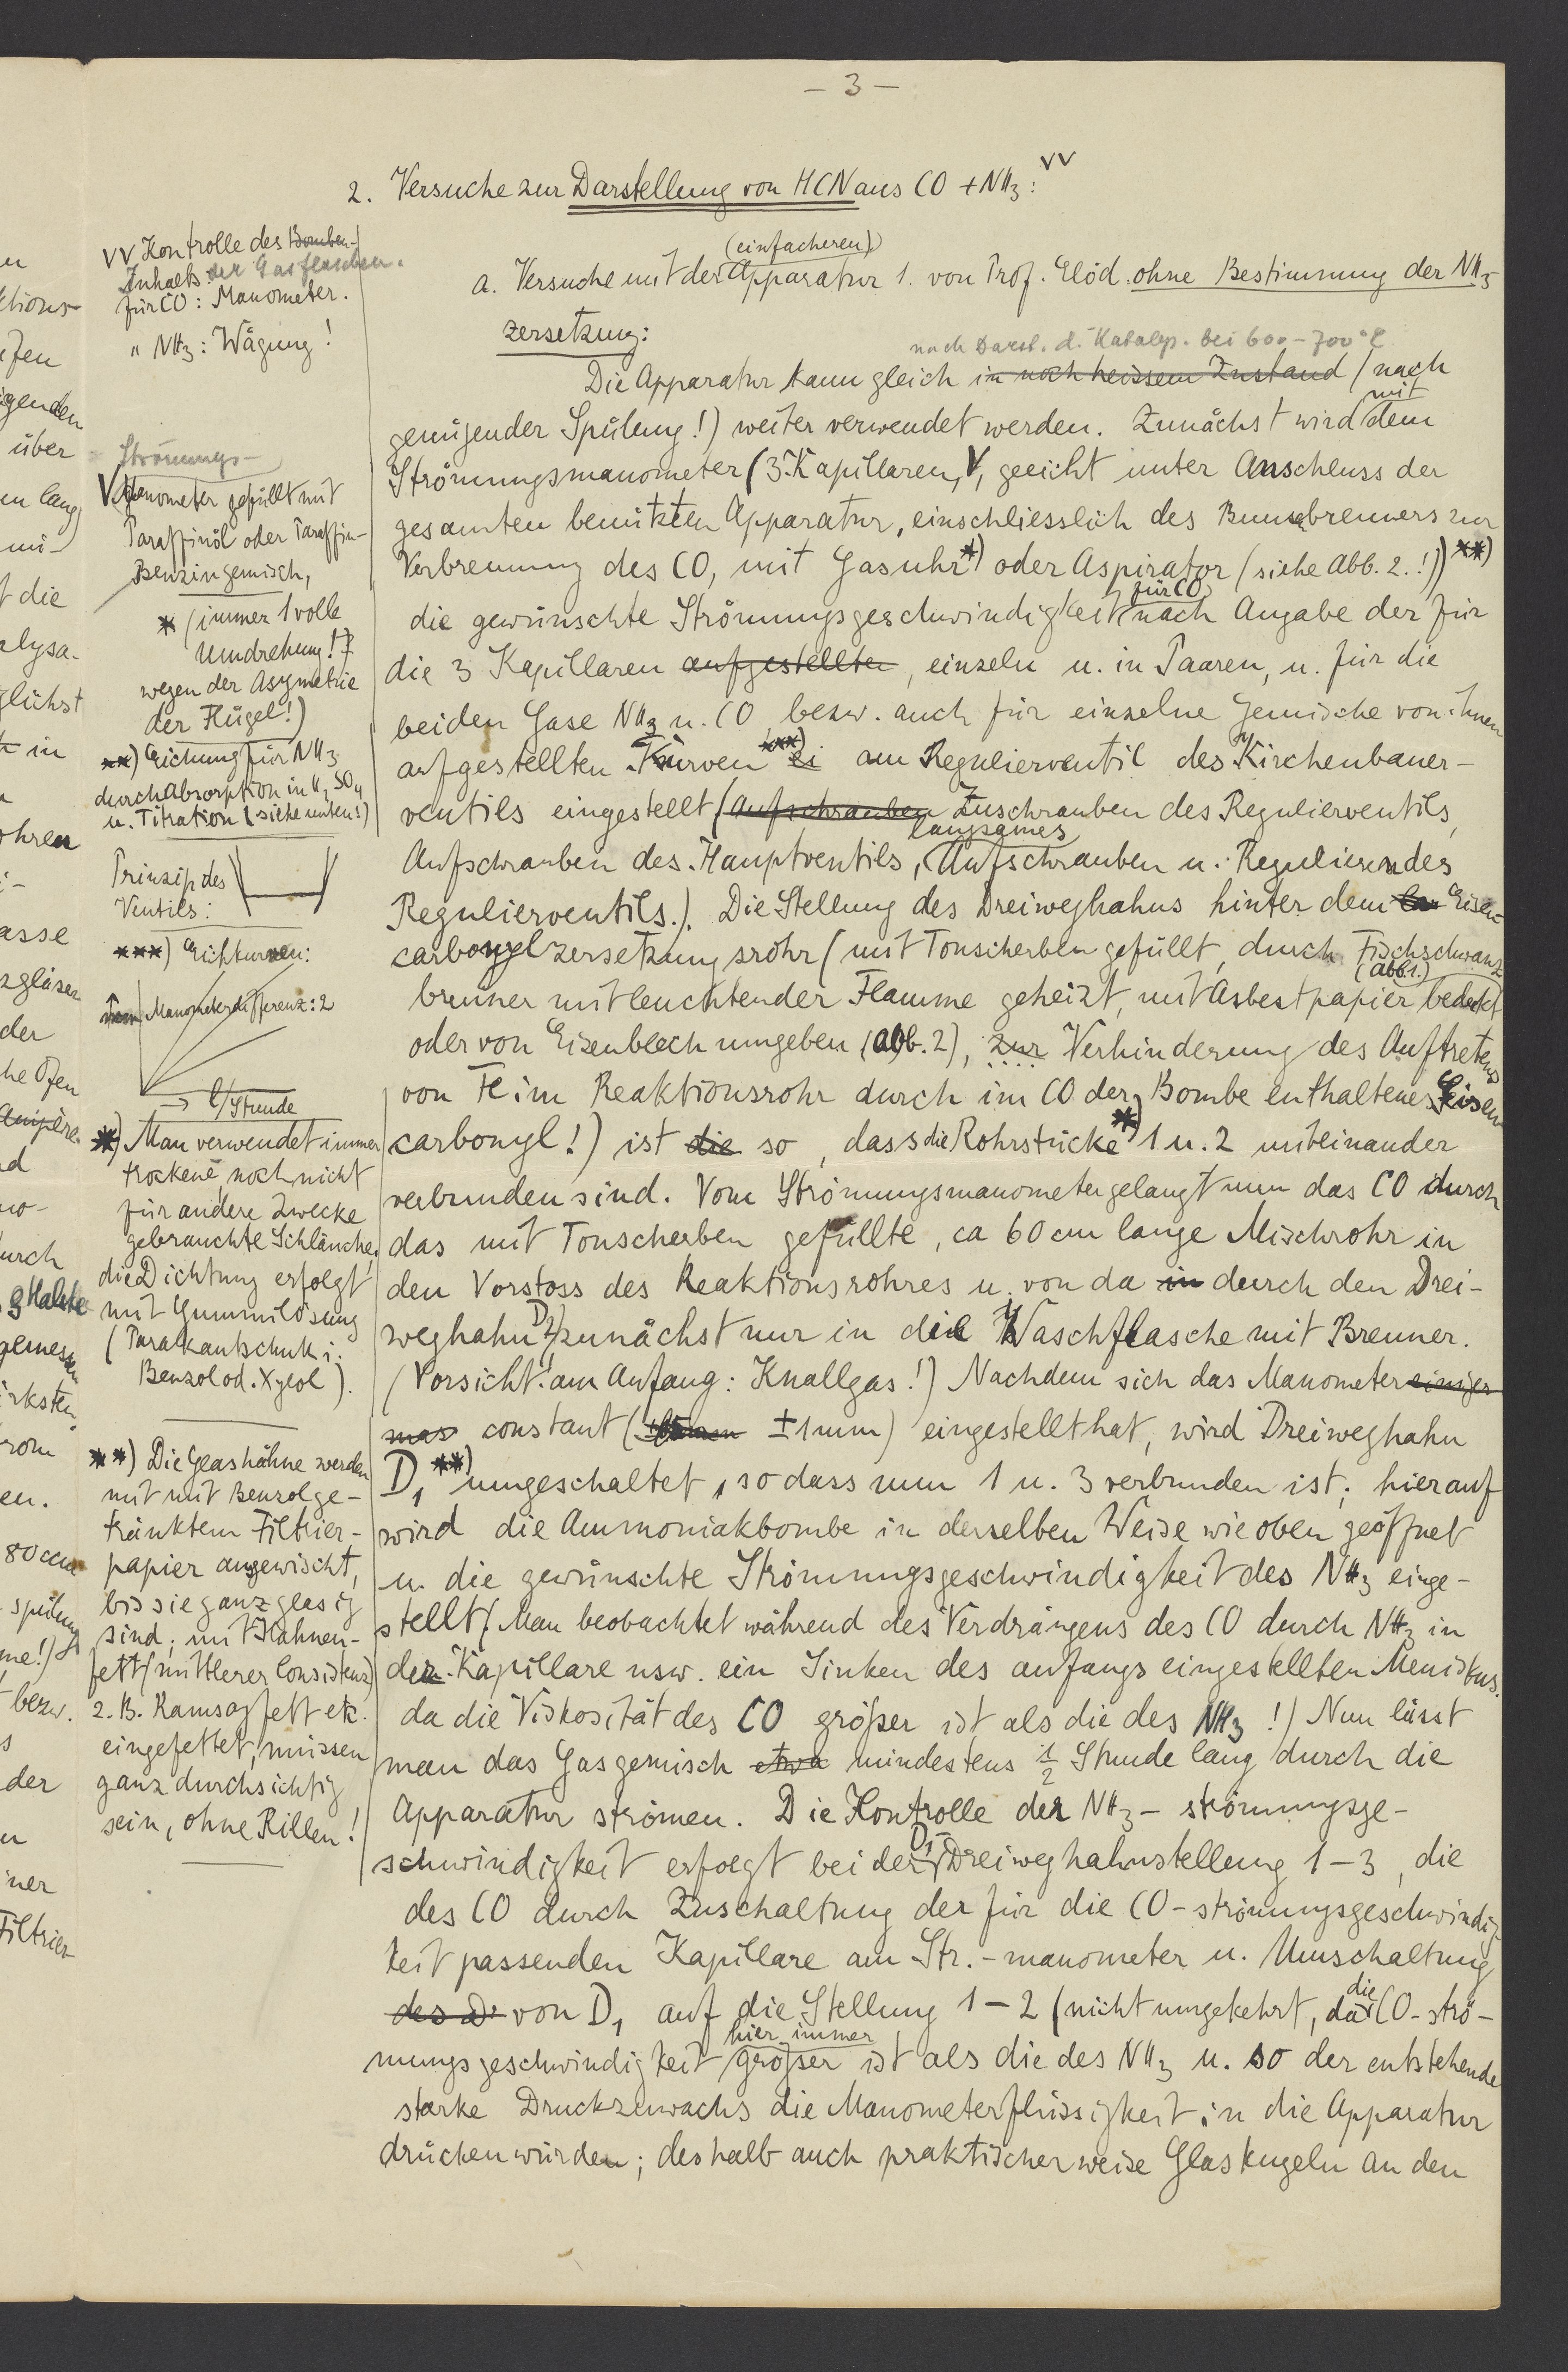 – 3 –
2. Versuche zur Darstellung von HCN aus CO + NH3 : VV
(einfacheren)
a. Versuche mit der Apparatur 1. von Prof. Elöd. ohne Bestimmung der NH3-
zersetzung:
nach Darst. d. Katalys. bei 600–700°C
Die Apparatur kann gleich in noch heissem Zustand (nach
mit
genügender Spülung!) weiter verwendet werden. Zunächst wird dem
Strömungsmanometer (3 Kapillaren, V, geeicht unter Anschluss der
gesamten benützten Apparatur, einschliesslich des Bunsenbrenners zur
Verbrennung des CO, mit Gasuhr *) oder Aspirator (siehe Abb. 2.!)) **)
für CO
die gewünschte Strömungsgeschwindigkeit nach Angabe der für
die 3 Kapillaren aufgestellten, einzeln u. in Paaren, u. für die
beiden Gase NH3 u. CO bezw. auch für einzelne Gemische von ihnen
aufgestellten Kurven ***) ei am Regulierventil des Kirchenbauer-
ventils eingestellt (Aufschrauben Zuschrauben des Regulierventils,
langsames
Aufschrauben des Hauptventils, Aufschrauben u. Regulieren des
Regulierventils.). Die Stellung des Dreiweghahns hinter dem Eisen-
carbonylzersetzungsrohr (mit Tonscherben gefüllt, durch Fischschwanz
(Abb1.)
brenner mit leuchtender Flamme geheizt, mit Asbestpapier bedeckt
oder von Eisenblech umgeben (Abb. 2), zur Verhinderung des Auftretens
von Fe im Reaktionsrohr durch im CO der Bombe enthaltenes Eisen
carbonyl!) ist die so, dass die Rohrstücke *) 1 u. 2 miteinander
verbunden sind. Vom Strömungsmanometer gelangt nun das CO durch
das mit Tonscherben gefüllte, ca 60 cm lange Mischrohr in
den Vorstoss des Reaktionsrohres u. von da in durch den Drei-
weghahn D2 zunächst nur in die Waschflasche mit Brenner.
(Vorsicht! am Anfang: Knallgas!) Nachdem sich das Manometer einiger
mas constant ( ±1mm) eingestellt hat, wird Dreiweghahn
D1 **) umgeschaltet, so dass nun 1 u. 3 verbunden ist; hierauf
wird die Ammoniakbombe in derselben Weise wie oben geöffnet
u. die gewünschte Strömungsgeschwindigkeit des NH3 einge-
stellt (Man beobachtet während des Verdrängens des CO durch NH3 in
der Kapillare usw. ein Sinken des anfangs eingestellten Meniskus.
da die Viskosität des CO größer ist als die des NH3 !) Nun lässt
man das Gasgemisch etwa mindestens 1/2 Stunde lang durch die
Apparatur strömen. Die Kontrolle der NH3 – strömungsge-
D1-
schwindigkeit erfolgt bei der Dreiweghahnstellung 1–3, die
des CO durch Zuschaltung der für die CO-strömungsgeschwindig
keit passenden Kapillare am Str.-manometer u. Umschaltung
des D1 von D1 auf die Stellung 1–2 (nicht umgekehrt, da die CO-strö-
hier immer
mungsgeschwindigkeit größer ist als die des NH3 u. so der entstehende
starke Druckzuwachs die Manometerflüssigkeit in die Apparatur
drücken würden; deshalb auch praktischerweise Glaskugeln an den
VV Kontrolle des Bomben-
Inhalts der Gasflaschen.
für CO : Manometer.
" NH3 : Wägung!
Strömungs-
V. Manometer gefüllt mit
Paraffinöl oder Paraffin-
Benzingemisch,
* (immer 1 volle
Umdrehung!
wegen der Asymetrie
der Flügel!)
**) Eichung für NH3
durch Absorption in H2SO4
u. Titration (siehe unten!)
Prinzip des
Ventils:
***) Eichkurven:
Manometerdifferenz: 2
→ l/Stunde
*) Man verwendet immer
trockene, noch nicht
für andere Zwecke
gebrauchte Schläuche,
die Dichtung erfolgt
mit Gummilösung
(Parakautschuk i.
Benzol od. Xylol).
**) Die Glashähne werden
mit mit Benzol ge-
tränktem Filtrier-
papier angewischt,
bis sie ganz glasig
sind; mit Hahnen-
fett (mittlerer Consistenz)
z.B. Ramsayfett etc.
eingefettet, müssen
ganz durchsichtig
sein, ohne Rillen!